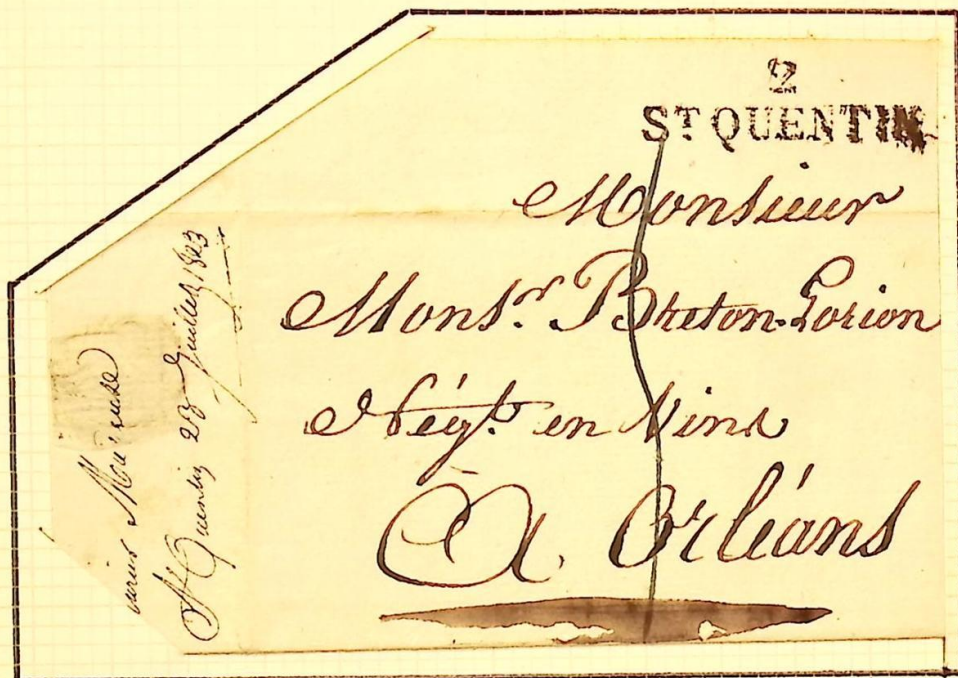 2
ST QUENTIN
Monsieur
Monsr. Breton-Lorion
Négt. en Vins
À Orléans
St Quentin 23 Juillet 1823